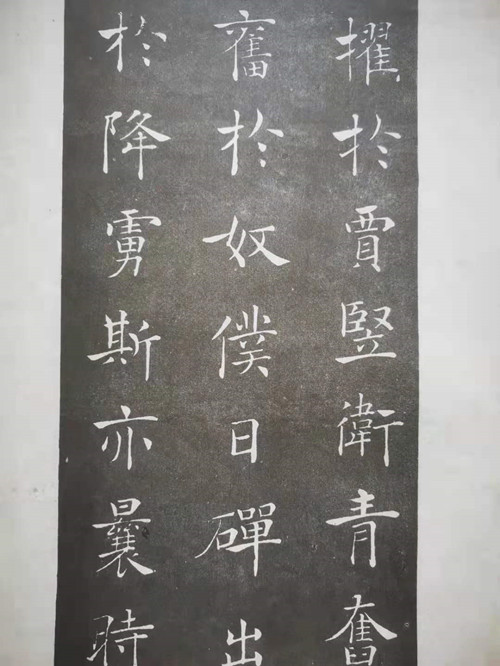 擢於賈竪衛青奮
奮於奴僕日磾出
於降虜斯亦曩時